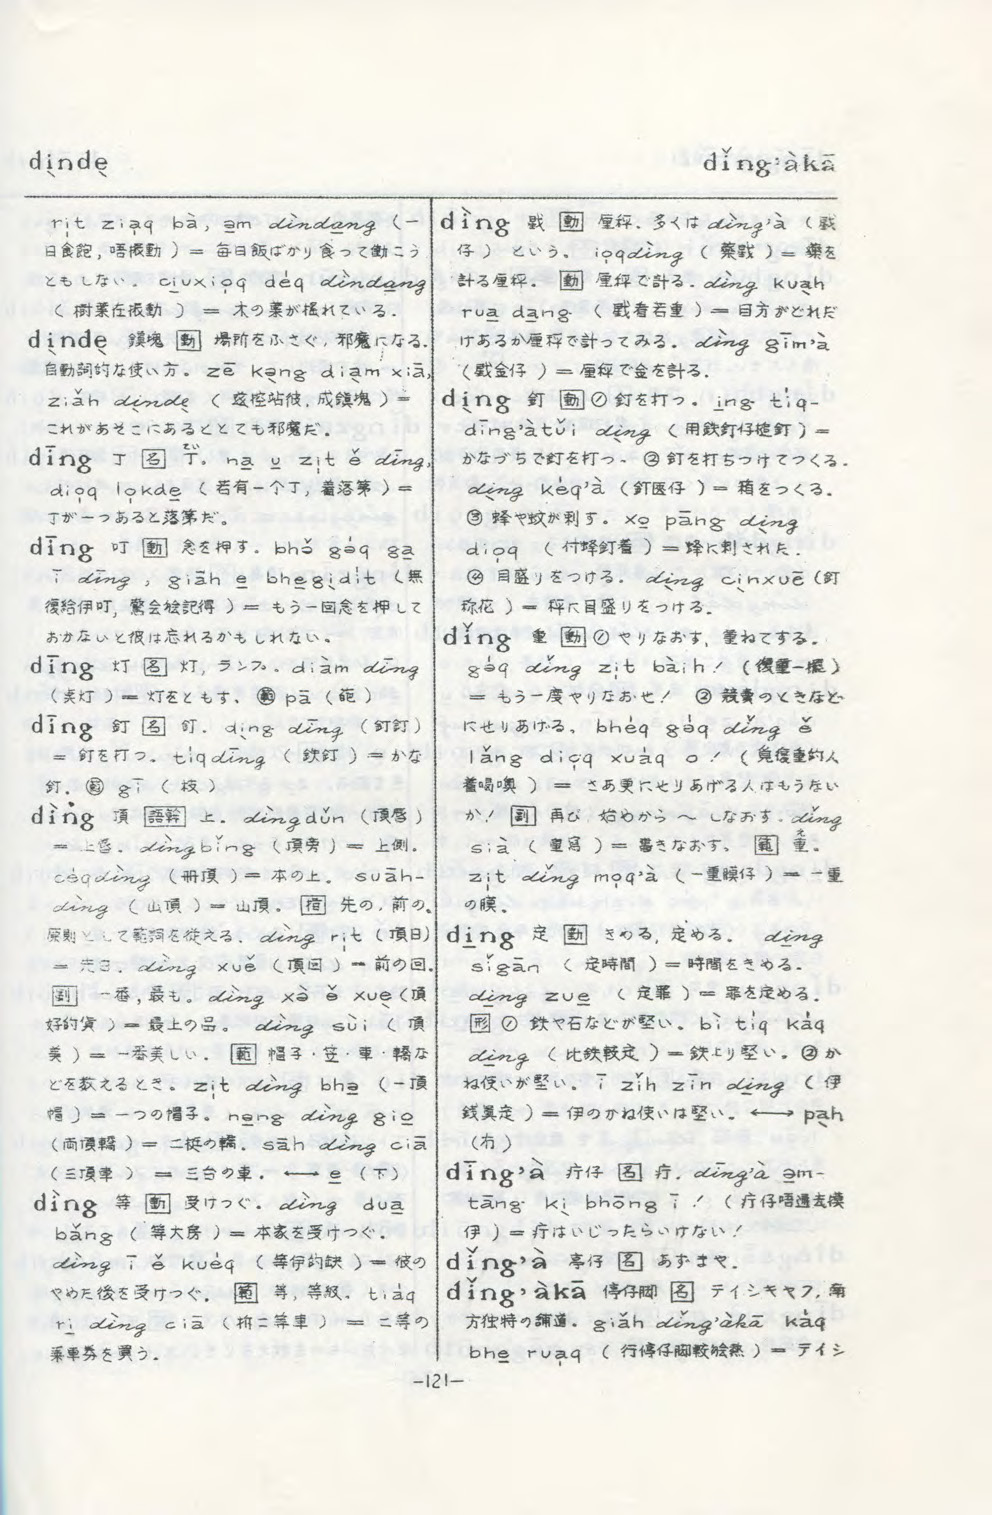 dịndẹ
dǐng'àkā
rịt ziạq bà, ạm dìndạng (一
日食飽, 唔振動) = 毎日飯ばかり食って働こう
ともしない. cịuxiọq déq dìndạng
(樹葉在振動) = 木の葉が揺れている.
dịndẹ 鎮塊 動 場所をふさぐ, 邪魔になる.
自動詞的な使い方. zē kạng diạm xiā,
ziǎh dịndẹ (玆徛站彼, 成鎮塊) =
これがあそこにあるととても邪魔だ.
dīng 丁 名 丁. nạ ụ zịt ě dīng,
diọq lọkdẹ (若有一个丁, 着落第) =
丁が一つあると落第だ.
dīng 叮 動 念を押す. bhǒ gəq gạ
ī dīng, giāh ẹ bhẹgịdịt (無
復給伊叮, 驚会𣍐記得) = もう一回念を押して
おかないと彼は忘れるかもしれない.
dīng 灯 名 灯, ランプ. diàm dīng
(点灯) = 灯をともす. 範 pā (葩)
dīng 釘 名 釘. dịng dīng (釘釘)
= 釘を打つ. tiq dīng (鉄釘) = かな
釘. 範 gī (枝)
dìng 頂 語幹 上. dìngdǔn (頂唇)
= 上唇. dìngbǐng (頂旁) = 上側.
céqdìng (冊頂) = 本の上. suāh-
dìng (山頂) = 山頂. 指 先の, 前の.
原則として範詞を従える. dìng rịt (頂日)
= 先日. dìng xuě (頂回) = 前の回.
副 一番, 最も. dìng xà ě xuẹ (頂
好的貨) = 最上の品. dìng sùi (頂
美) = 一番美しい. 範 帽子·笠·車·轎な
どを数えるとき. zịt dìng bhẹ (一頂
帽) = 一つの帽子. nạng dìng giọ
(両頂轎) = 二挺の轎. sāh dìng ciā
(三頂車) = 三台の車. ←→ ẹ (下)
dìng 等 動 受けつぐ. dìng duạ
bǎng (等大房) = 本家を受けつぐ.
dìng ī ě kuéq (等伊的缺) = 彼の
やめた後を受けつぐ. 範 等, 等級. tiáq
rị dìng ciā (拆二等車) = 二等の
乗車券を買う.
dìng 戥 動 厘秤. 多くは dìng'à (戥
仔) という. iọqdìng (薬戥) = 薬を
計る厘秤. 動 厘秤で計る. dìng kuạh
ruạ dạng (戥看若重) = 目方がどれだ
けあるか厘秤で計ってみる. dìng gīm'à
(戥金仔) = 厘秤で金を計る.
dịng 釘 動 ① 釘を打つ. ịng tiq-
dīng'àtǔi dịng (用鉄釘仔槌釘) =
かなづちで釘を打つ. ② 釘を打ちつけてつくる.
dịng kéq'à (釘医仔) = 箱をつくる.
③ 蜂や蚊が刺す. xọ pāng dịng
diọq (付蜂釘着) = 蜂に刺された.
④ 目盛りをつける. dịng cịnxuē (釘
称花) = 秤に目盛りをつける.
dǐng 重 動 ① やりなおす, 重ねてする.
gəq dǐng zịt bàih! (復重一擺)
= もう一度やりなおせ! ② 競売のときなど
にせりあげる. bhéq gəq dǐng ě
lǎng diọq xuáq o! (覓復重的人
着喝噢) = さあ更にせりあげる人はもうない
か! 副 再び, 始めから ～ しなおす. dǐng
sià (重寫) = 書きなおす. 範 重.
zịt dǐng mọq'à (一重膜仔) = 一重
の膜.
dịng 定 動 きめる, 定める. dịng
sǐgān (定時間) = 時間をきめる.
dịng zuẹ (定罪) = 罪を定める.
形 ① 鉄や石などが堅い. bì tiq káq
dịng (比鉄較定) = 鉄より堅い. ② か
ね使いが堅い. ī zǐh zīn dịng (伊
銭真定) = 伊のかね使いは堅い. ←→ pạh
(冇)
dīng'à 疔仔 名 疔. dīng'à ạm-
tāng kị bhōng ī! (疔仔唔通去摸
伊) = 疔はいじったらいけない!
dǐng'à 亭仔 名 あずまや.
dǐng'àkā 停仔脚 名 テイシキヤフ, 南
方独特の舗道. giǎh dǐng'àkā káq
bhẹ ruaq (行停仔脚較𣍐熱) = テイシ
—121—